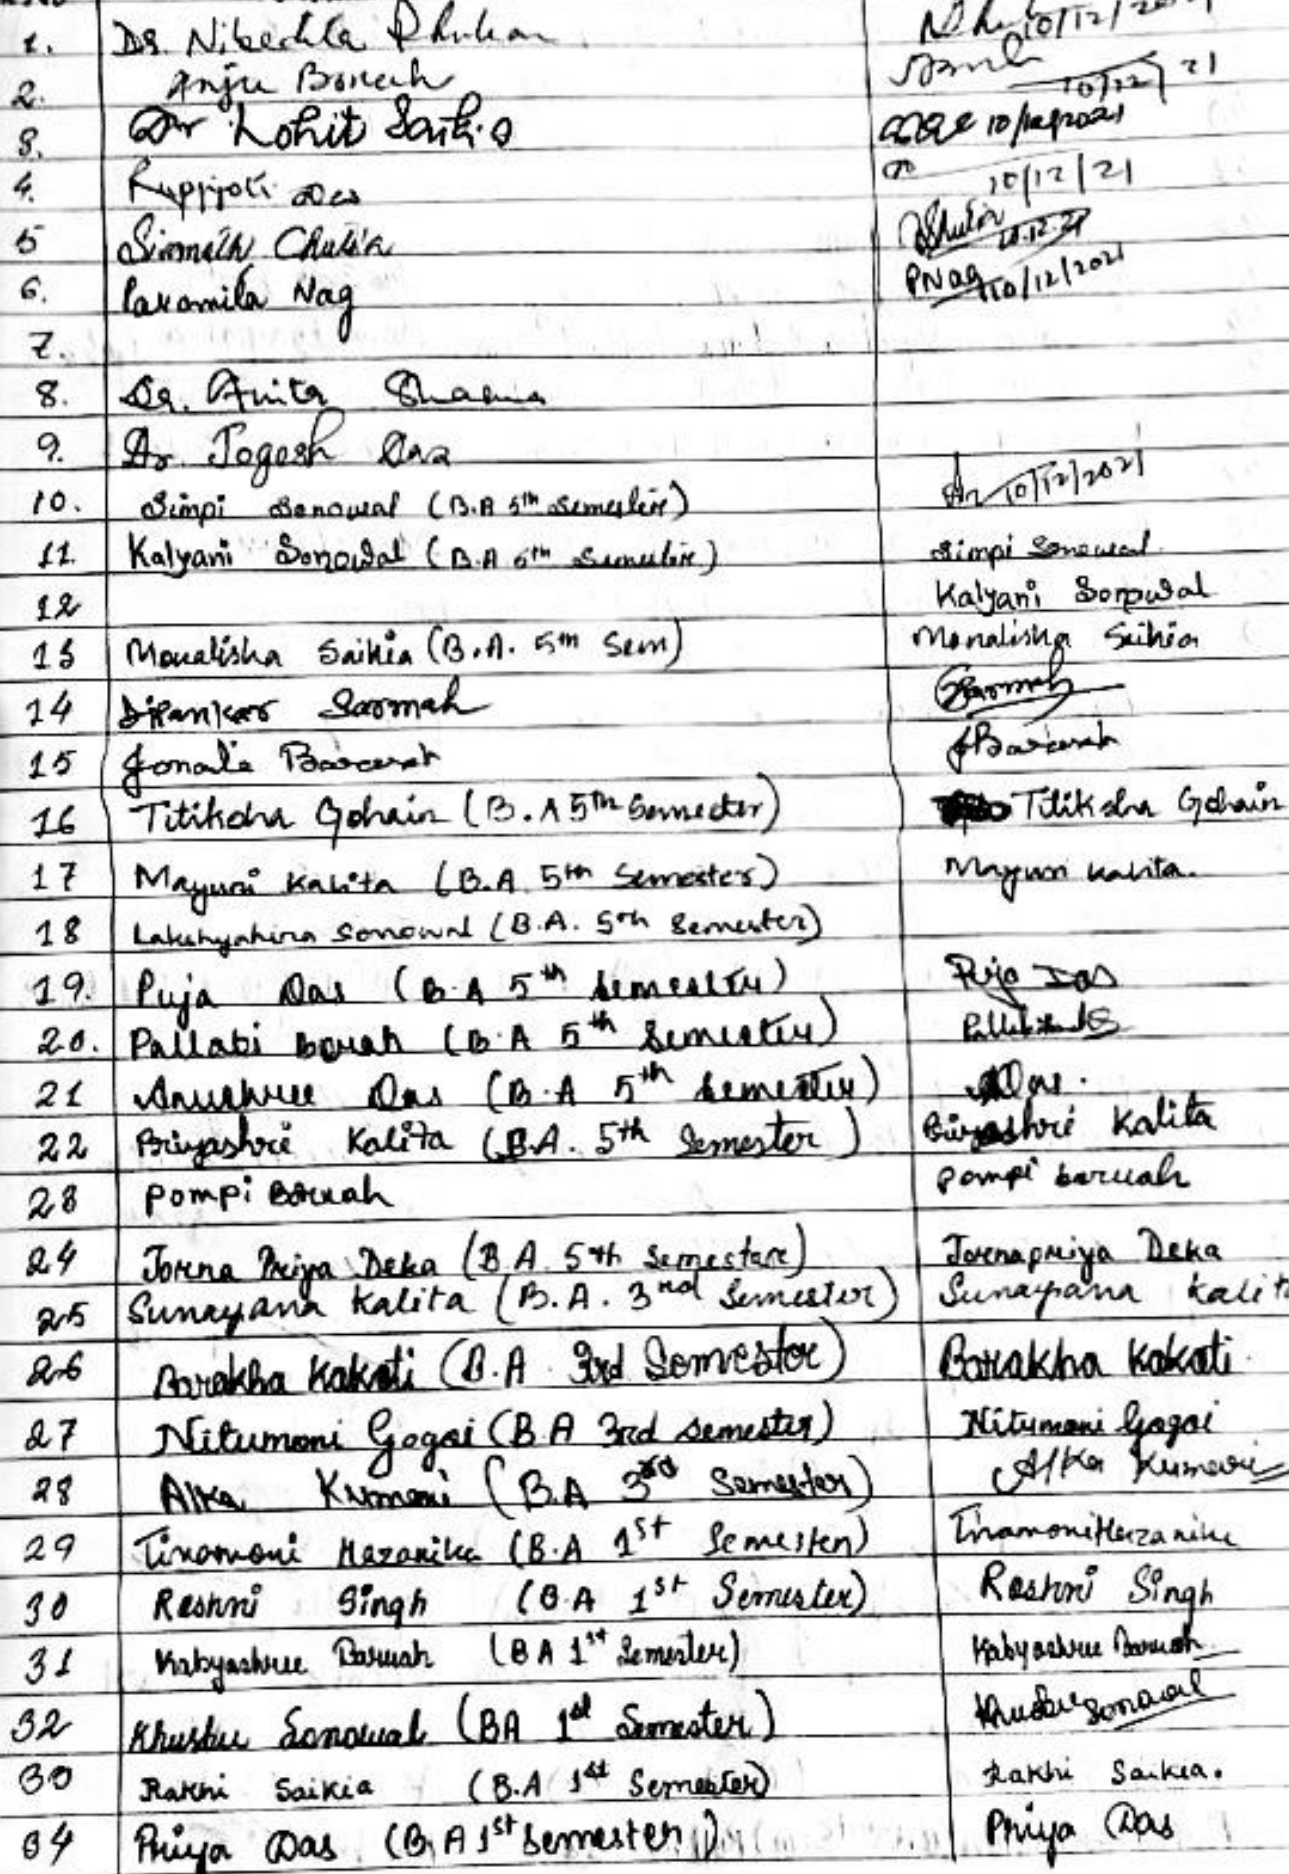 1. Dr. Nibedita Phukan 10/12/2021
2. Anju Borah 10/12/21
3. Dr Lohit Saikia 10/12/2021
4. Rupjyoti Das 10/12/21
5 Chutia 10.12.21
6. Paromita Nag PNag 10/12/2021
7.
8. Dr. Anita Sharma
9. Dr. Jogesh Das
10. Simpi Sonowal (B.A 5th Semester) 10/12/2021
11. Kalyani Sonowal (B.A 5th Semester) Simpi Sonowal
12 Kalyani Sonowal
13 Monalisha Saikia (B.A. 5th Sem) Monalisha Saikia
14 Dipankar Sarmah Sarmah
15 Jonali Baruah JBaruah
16 Titiksha Gohain (B.A 5th Semester) Titiksha Gohain
17 Mayuri Kalita (B.A. 5th Semester) Mayuri Kalita.
18 Lakshyahira Sonowal (B.A. 5th Semester)
19. Puja Das (B.A 5th Semester) Puja Das
20. Pallabi Borah (B.A 5th Semester)
21 Anushree Das (B.A 5th Semester) ADas.
22 Priyashri Kalita (B.A. 5th Semester) Priyashri Kalita
23 Pompi Boruah Pompi baruah
24 Jorna Priya Deka (B.A. 5th Semester) Jornapriya Deka
25 Sunayana Kalita (B.A. 3rd Semester) Sunayana Kalita
26 Barakha Kakati (B.A 3rd Semester) Barakha Kakati
27 Nitumoni Gogoi (B.A 3rd semester) Nitumoni Gogoi
28 Alka Kumari (B.A 3rd Semester) Alka Kumari
29 Tinamoni Hazarika (B.A 1st Semester) Tinamoni Hazarika
30 Reshni Singh (B.A 1st Semester) Reshni Singh
31 Kabyashree Baruah (BA 1st Semester) Kabyashree Baruah
32 Khusbu Sonowal (BA 1st Semester) Khusbu Sonowal
33 Rakhi Saikia (B.A 1st Semester) Rakhi Saikia.
34 Priya Das (B.A 1st Semester) Priya Das